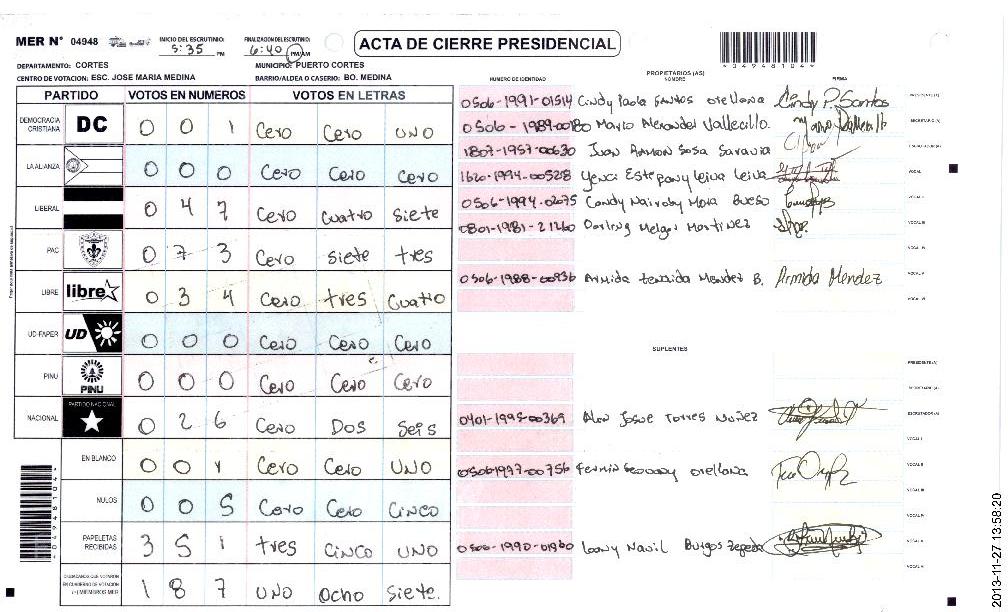 MER N° 04948
INICIO DEL ESCRUTINIO: 5:35 PM
FINALIZACION DEL ESCRUTINIO: 6:40 PM/AM
ACTA DE CIERRE PRESIDENCIAL
04948104
DEPARTAMENTO: CORTES
MUNICIPIO: PUERTO CORTES
CENTRO DE VOTACION: ESC. JOSE MARIA MEDINA
BARRIO/ALDEA O CASERIO: BO. MEDINA
PARTIDO VOTOS EN NUMEROS VOTOS EN LETRAS
DEMOCRACIA CRISTIANA DC 0 0 1 Cero Cero UNO
LA ALIANZA 0 0 0 Cero Cero Cero
LIBERAL 0 4 7 Cero Cuatro Siete
PAC 0 7 3 Cero Siete tres
LIBRE libre 0 3 4 Cero tres Cuatro
UD-FAPER UD 0 0 0 Cero Cero Cero
PINU PINU 0 0 0 Cero Cero Cero
NACIONAL PARTIDO NACIONAL 0 2 6 Cero Dos Seis
EN BLANCO 0 0 1 Cero Cero UNO
NULOS 0 0 5 Cero Cero Cinco
PAPELETAS RECIBIDAS 3 5 1 tres Cinco UNO
CIUDADANOS QUE VOTARON EN CUADERNO DE VOTACION (+) MIEMBROS MER 1 8 7 UNO Ocho Siete.
NUMERO DE IDENTIDAD PROPIETARIOS (AS) NOMBRE FIRMA
0506-1991-01514 Cindy Paola Santos Orellana Cindy P. Santos PRESIDENTE(A)
0506-1989-00180 Mario Vallecillo. SECRETARIO (A)
1807-1957-00630 Juan Ramon Sosa Saravia ESCRUTADOR(A)
1620-1994-00528 Yenci Estepany Leiva Leiva VOCAL I
0506-1994-02075 Candy Nairoby Mora Bueso VOCAL II
0801-1981-21260 Darling Melgar Martinez VOCAL III
VOCAL IV
0506-1988-00936 Armida Mendez B. Armida Mendez VOCAL V
VOCAL VI
SUPLENTES
PRESIDENTE(A)
SECRETARIO (A)
0401-1995-00369 Alex Josue Torres Nuñez ESCRUTADOR(A)
VOCAL I
0506-1997-00756 Fermin Orellana VOCAL II
VOCAL III
VOCAL IV
0506-1990-01960 Burgos Zepeda VOCAL V
VOCAL VI
2013-11-27 13:58:20